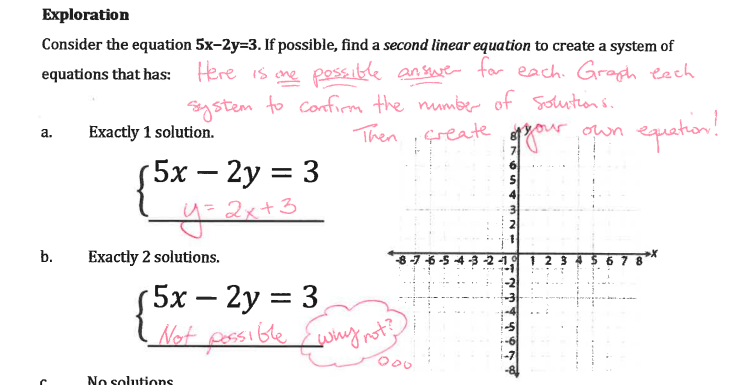 Exploration
Consider the equation 5x–2y=3. If possible, find a second linear equation to create a system of
equations that has: Here is one possible answer for each. Graph each
system to confirm the number of solutions.
a. Exactly 1 solution. Then create your own equation!
5x − 2y = 3
y = 2x + 3
b. Exactly 2 solutions.
5x − 2y = 3
Not possible why not?
y
8
7
6
5
4
3
2
1
-8 -7 -6 -5 -4 -3 -2 -1 0 1 2 3 4 5 6 7 8 x
-1
-2
-3
-4
-5
-6
-7
-8
c. No solutions